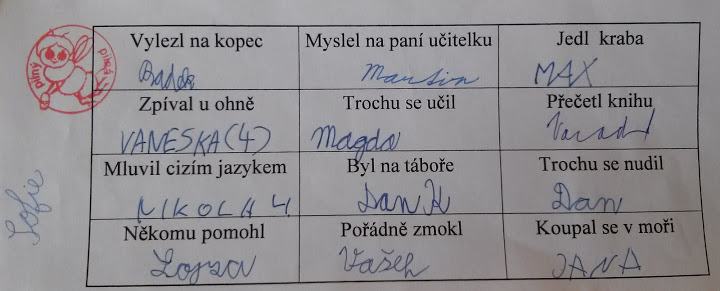 pilný
pilná
Sofie
Vylezl na kopec
Myslel na paní učitelku
Martin
Jedl kraba
MAX
Zpíval u ohně
VANESKA(4)
Trochu se učil
Magda
Přečetl knihu
Mluvil cizím jazykem
Byl na táboře
Dan K
Trochu se nudil
Dan
Někomu pomohl
Pořádně zmokl
Vašek
Koupal se v moři
JANA